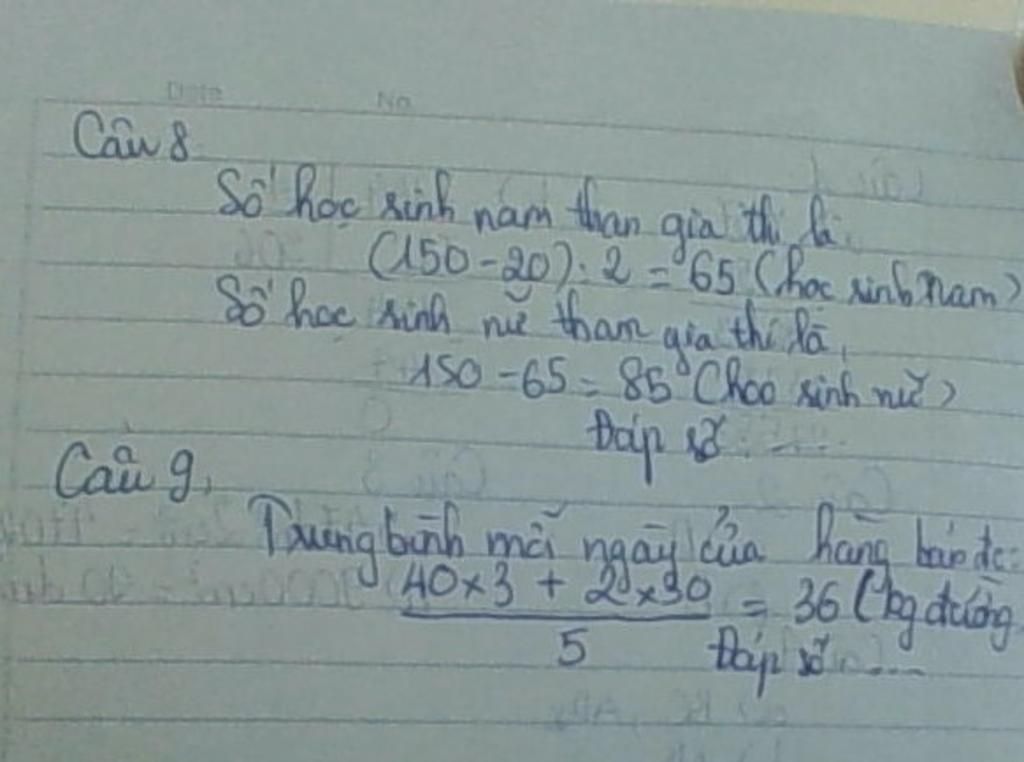 Date No
Câu 8
Số học sinh nam than gia thi là:
(150 - 20) : 2 = 65 (học sinh nam)
Số học sinh nữ tham gia thi là,
150 - 65 = 85 (hoc sinh nữ)
Đáp số: ....
Câu 9,
Trung bình mỗi ngày cửa hàng bán đc:
40 x 3 + 2 x 30 = 36 (kg đường
5 Đáp số ....